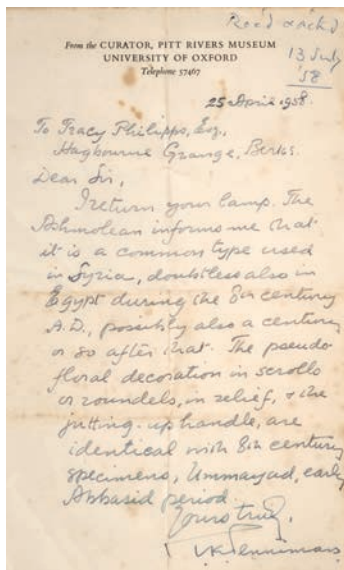 Rec'd & ack'd
13 July
'58
From the CURATOR, PITT RIVERS MUSEUM
UNIVERSITY OF OXFORD
Telephone 57467
25 April 1958.
To Tracy Philipps, Esq.,
Hagbourne Grange, Berks.
Dear Sir,
I return your lamp. The
Ashmolean informs me that
it is a common type used
in Syria, doubtless also in
Egypt during the 8th century
A.D., possibly also a century
or so after that. The pseudo
floral decoration in scrolls
or roundels, in relief, & the
jutting-up handle, are
identical with 8th century
specimens, Ummayad, early
Abbasid period
Yours truly,
T.K. Penniman